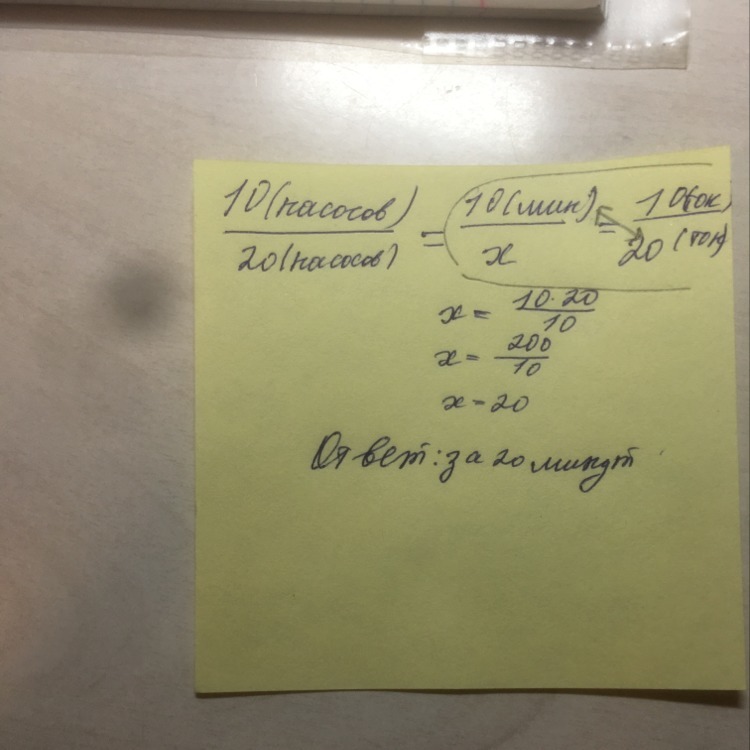 10(насосов) / 20(насосов) = 10(мин) / x = 10(тон) / 20(тон)
x = 10·20 / 10
x = 200 / 10
x = 20
Ответ: за 20 минут